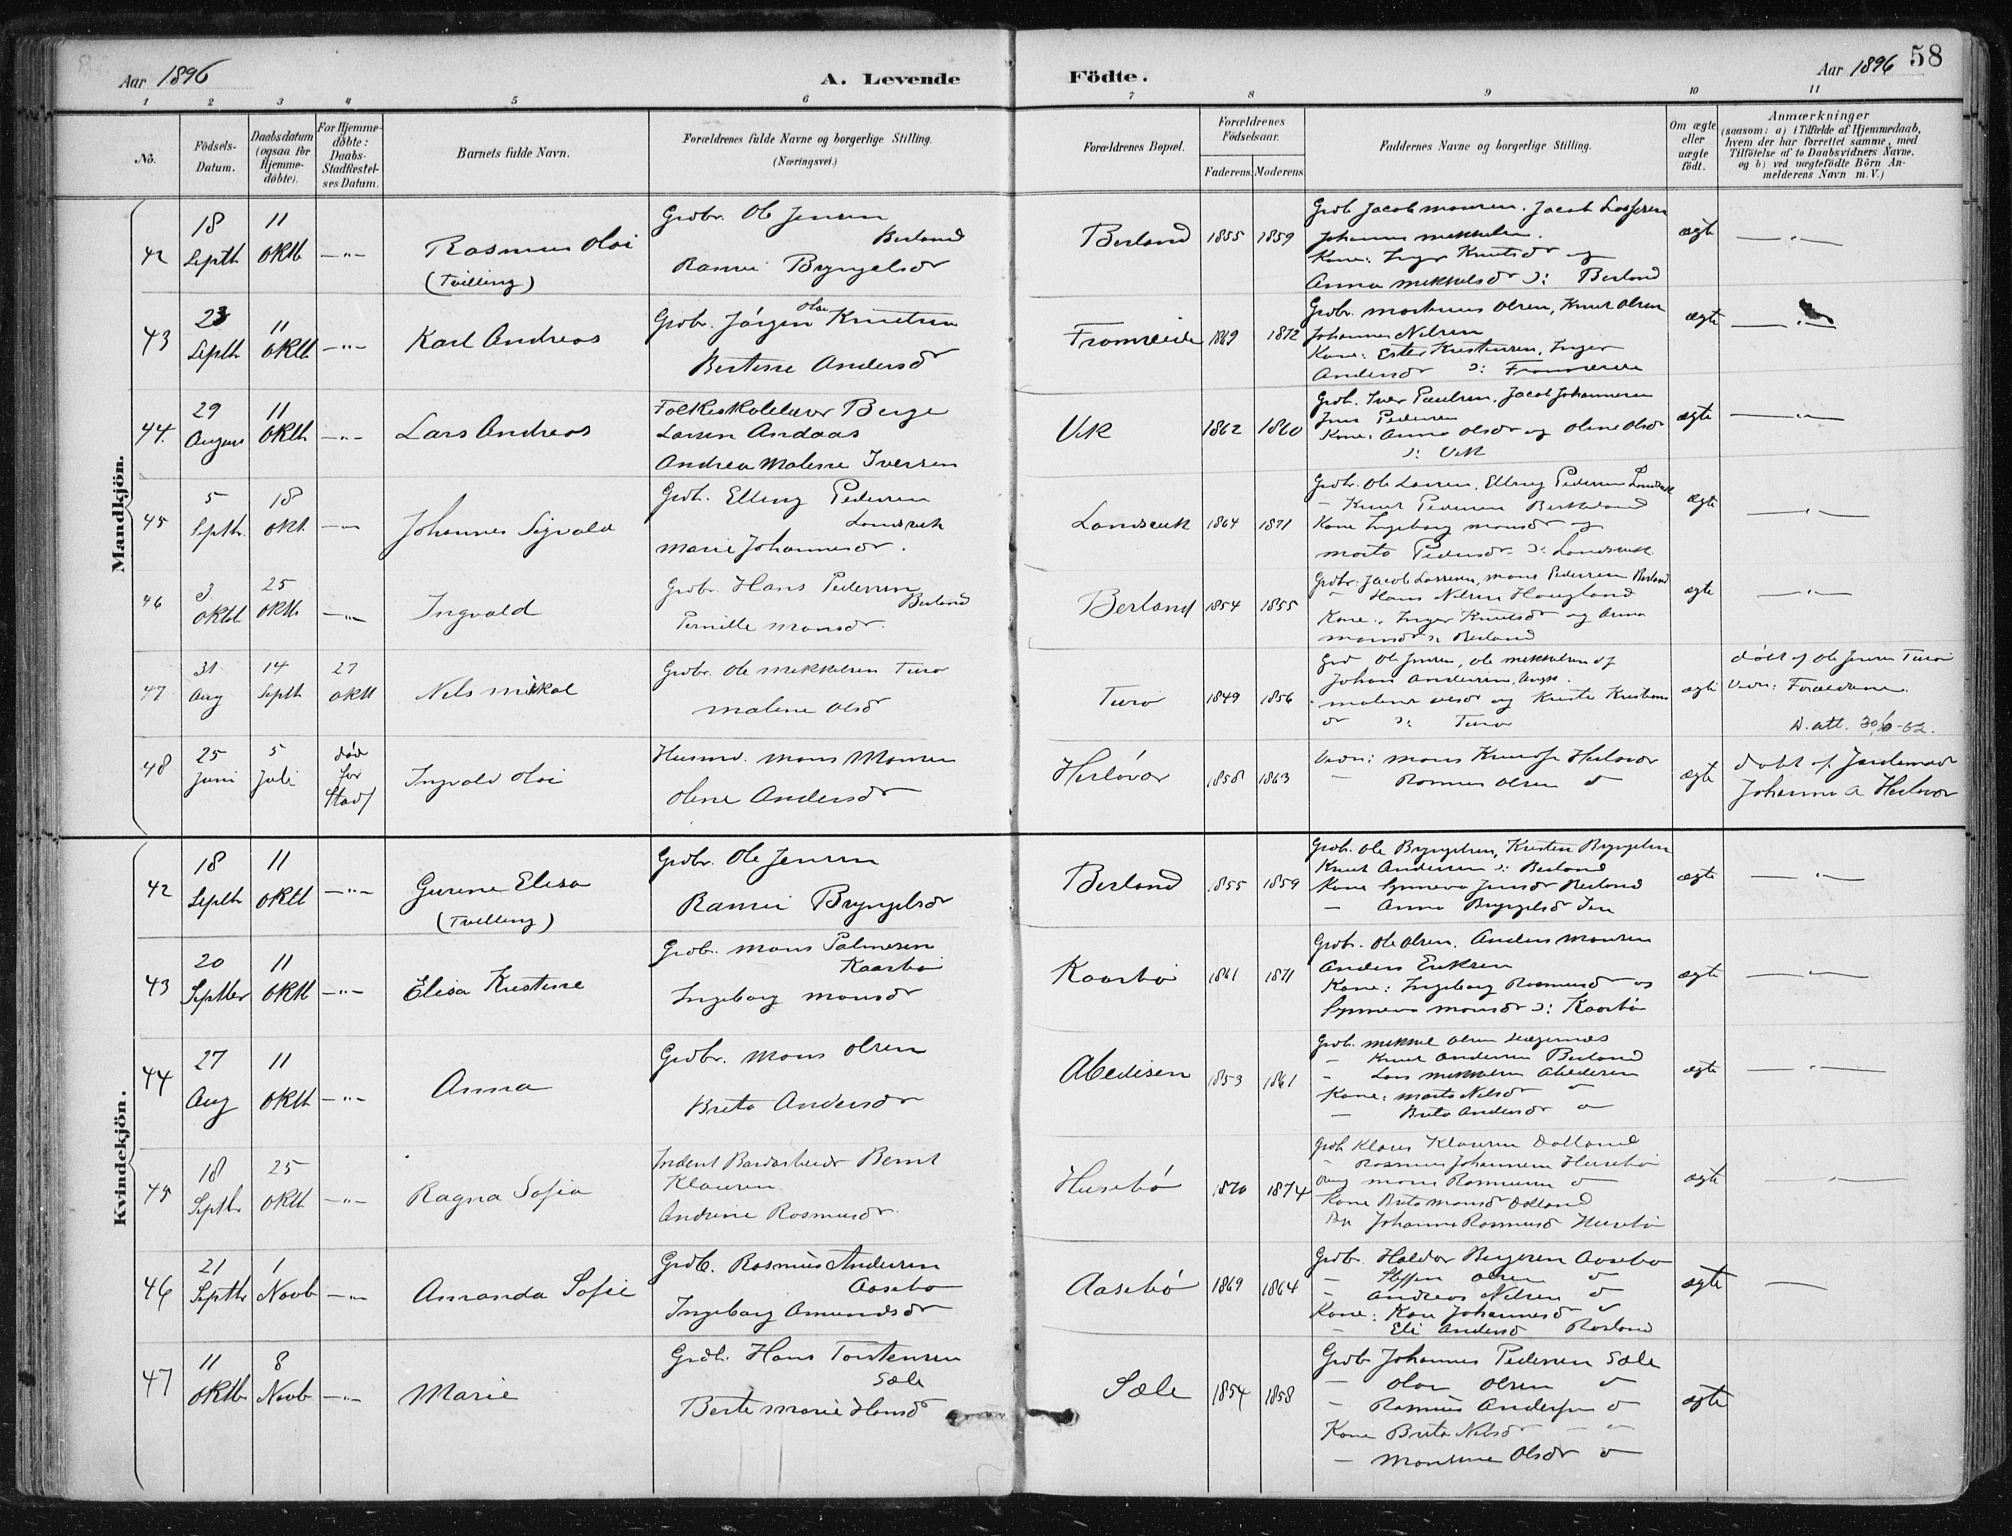 Aar 1896
A. Levende
Födte.
Aar 1896
58
1 2 3 4 5 6 7 8 9 10 11
No.
Födsels-
Datum.
Daabsdatum
(ogsaa for
Hjemme-
döbte).
For Hjemme-
döbte:
Daabs-
Stadfæstel-
ses Datum.
Barnets fulde Navn.
Forældrenes fulde Navne og borgerlige Stilling.
(Næringsvei.)
Forældrenes Bopæl.
Forældrenes
Födselsaar.
Faderens.
Moderens.
Faddernes Navne og borgerlige Stilling.
Om ægte
eller
uægte
födt.
Anmærkninger
(saasom: a) i Tilfælde af Hjemmedaab,
hvem der har forrettet samme, med
Tilföielse af to Daabsvidners Navne.
og b) ved uægtefödte Börn An-
melderens Navn m. V.)
Mandkjön.
42
18 Septb
11 Oktb
Rasmus Oloi
(Tvilling)
Grdbr. Ole Jensen
Berland
Rasmi Bryngelsdr
Berland
1855
1859
Grdb Jacob Monsen. Jacob Lassesen
Johannes Mekkelsen.
Kone: Inger Knutsdr og
Anna Mekkelsdr ɔ: Berland
ægte
43
23 Septb
11 Oktb
Karl Andreas
Grdbr. Jørgen Knutsen
Bertine Andersdr
Fromreide
1869
1872
Grdbr. Markus Olsen, Knut Olsen
Johannes Nilsen
Kone: Ester Kristensen, Inger
Andersdr ɔ: Fromreide
ægte
44.
29 August
11 Oktb
Lars Andreas
Folkeskolelærer Berge
Larsen Andaas
Andrea Malene Iversen
Vik
1862
1860
Grdb. Iver Paulsen, Jacob Johannesen
Jens Pedersen
Kone: Anna Olsdr og Oline Olsdr
ɔ: Vik
ægte
45
5 Septbr.
18 Okt
Johannes Sigvald
Grdb. Elling Pedersen
Landsvik
Marie Johannesdr.
Landsvik
1864
1871
Grdbr. Ole Larsen, Elling Pedersen Landsvik
— Knut Pedersen
Kone Ingeborg Monsdr og
Marta Pedersdr ɔ: Landsvik
ægte
46
3 Oktb
25 Oktb
Ingvald
Grdbr Hans Pedersen
Berland
Pernille Monsdr.
Berland
1854
1855
Grdbr. Jacob Lassesen, Mons Pedersen Berland
— Hans Nilsen Haugland
Kone: Inger Knutsdr og Anna
Monsdr ɔ: Berland
ægte
47
31 Aug
14 Septb
27 Oktb
Nils Mikal
Grdbr. Ole Mekkelsen Turø
Malene Olsdr
Turø
1849
1856
Grd Ole Jensen, Ole Mekkelsen
Johan Andersen,
Malene Olsdr og Kirste Kristens
dr ɔ: Turø
ægte
døbt af Ole Jensen Turø
Vidn: Forældrene.
D. att. 30/6-62.
48
25 Juni
5 Juli
død
for
Stadf
Ingvald Oloi
Husmd. Mons Monsen
Oline Andersdr
Herløvær
1858
1863
Vidn: Mons Knudsn Herløvær
— Rasmus Olsen do
ægte
døbt af Jordemor
Johanna A Herløvær
Kvindekjön.
42
18 Septb
11 Oktb
Gurine Elisa
(Tvilling)
Grdbr. Ole Jensen
Rasmi Bryngelsdr
Berland
1855
1859
Grdb. Ole Bryngelsen, Kristen Bryngelsen
Knut Andersen ɔ: Berland
Kone Synneva Jensdr Berland
— Anna Bryngelsdr
ægte
43
20 Septbr
11 Oktb
Elisa Kristine
Grdbr. Mons Palmesen
Kaarbø
Ingeborg Monsdr
Kaarbø
1861
1871
Grdbr. Ole Olsen. Anders Monsen
Anders Eriksen
Kone: Ingeborg Rasmusdr og
Synneva Monsdr ɔ: Kaarbø
ægte
44
27 Aug
11 Oktb
Anna
Grdbr. Mons Olsen
Brita Andersdr
Abedisen
1853
1861
Grdb. Mikkel Olsen
— Knut Andersen Berland
— Lars Mekkelsen Abedisen
Kone: Marta Nilsdr do
— Brita Andersdr do
ægte
45
18 Septbr
25 Oktb
Ragna Sofia
Bernt
Klausen.
Andrine Rasmusdr.
Husebø
1870
1874
Grdb Klaus Klausen Dalland
— Rasmus Johannesen Husebø
Ung Mons Rasmussen do
Kone Brita Monsdr Dalland
Johanna Rasmusd Husebø
ægte
46
21 Septbr
1 Novb
Amanda Sofie
Grdb. Rasmus Andersen
Aasebø
Ingeborg Amundsdr
Aasebø
1869
1864
Grdbr. Haldor Birgesen Aasebø
— Steffen Olsen do
— Andreas Nilsen do
Kone: Kari Johannesd do
— Eli Andersd
ægte
47
11 Oktb
8 Novb
Marie
Grdb. Hans Torstensen
Sæle
Berte Marie Hansd
Sæle
1854
1858
Grdb Johannes Pedersen Sæle
— Olai Olsen do
— Rasmus Andersen do
Kone Brita Nilsdr
— Monsine Olsdr do
ægte